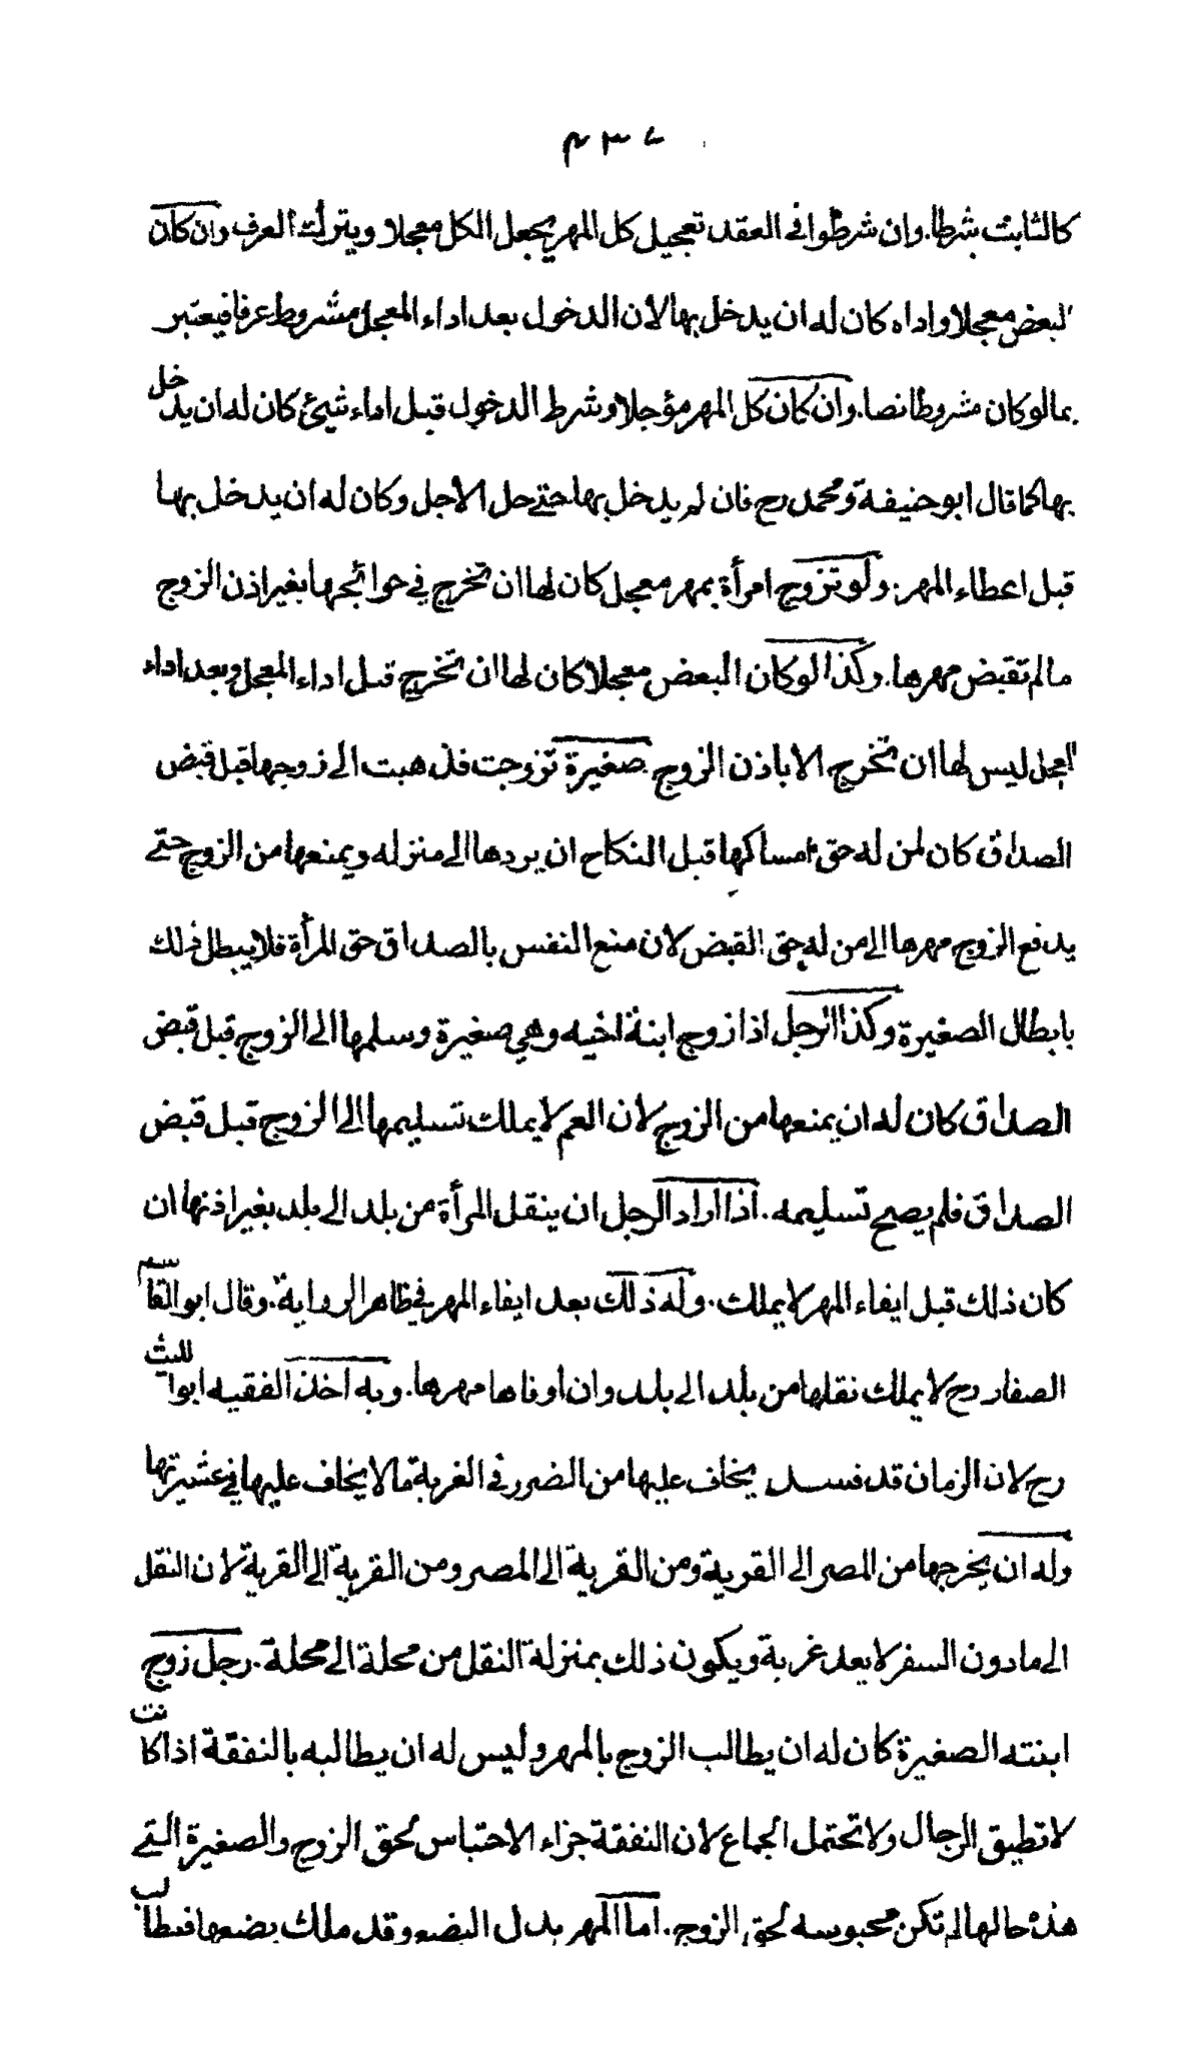 ٤٣٧
كالثابت شرطا. وان شرطوا في العقد تعجيل كل المهر يجعل الكل معجلا ويترك العرف وان كان
البعض معجلا واداه كان له ان يدخل بها لان الدخول بعد اداء المعجل مشروط عرفا فيعتبر
بما لو كان مشروطا نصا. وان كان كل المهر مؤجلا وشرط الدخول قبل اداء شيئ كان له ان يدخل
بها كما قال ابو حنيفة ومحمد رح فان لم يدخل بها حتے حل الاجل وكان له ان يدخل بها
قبل اعطاء المهر. ولو تزوج امرأة بمهر معجل كان لها ان تخرج في حوائجها بغير اذن الزوج
مالم تقبض مهرها. وكذا لو كان البعض معجلا كان لها ان تخرج قبل اداء المعجل وبعد اداء
المعجل ليس لها ان تخرج الا باذن الزوج. صغيرة تزوجت فذهبت الى زوجها قبل قبض
الصداق كان لمن له حق امساكها قبل النكاح ان يردها الے منزله ويمنعها من الزوج حتے
يدفع الزوج مهرها الے من له حق القبض لان منع النفس بالصداق حق المرأة فلا يبطل ذلك
بابطال الصغيرة وكذا الرجل اذا زوج ابنة اخيه وهي صغيرة وسلمها الى الزوج قبل قبض
الصداق كان له ان يمنعها من الزوج لان العم لا يملك تسليمها الى الزوج قبل قبض
الصداق فلم يصح تسليمه. اذا اراد الرجل ان ينقل المرأة من بلد الى بلد بغير اذنها ان
كان ذلك قبل ايفاء المهر لا يملك. وله ذلك بعد ايفاء المهر في ظاهر الرواية. وقال ابو القاسم
الصفار رح لا يملك نقلها من بلد الى بلد وان اوفاها مهرها. وبه اخذ الفقيه ابو الليث
رح لان الزمان قد فسد يخاف عليها من الضرر في الغربة مالا يخاف عليها في عشيرتها
وله ان يخرجها من المصر الى القرية ومن القرية الى المصر ومن القرية الى القرية لان النقل
الى مادون السفر لا يعد غربة ويكون ذلك بمنزلة النقل من محلة الى محلة. رجل زوج
ابنته الصغيرة كان له ان يطالب الزوج بالمهر وليس له ان يطالبه بالنفقة اذا كانت
لا تطيق الرجال ولا تحتمل الجماع لان النفقة جزاء الاحتباس لحق الزوج والصغيرة التے
هذه حالها لم تكن محبوسه لحق الزوج. اما المهر بدل البضع وقد ملك بضعها فيطالب